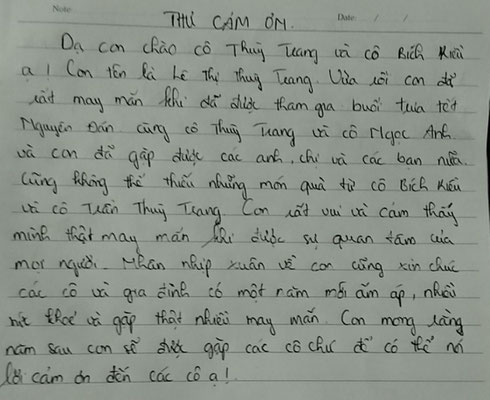 Note:
Date: / /
THƯ CẢM ƠN.
Dạ con chào cô Thuỳ Trang và cô Bích Kiều
ạ! Con tên là Lê Thị Thuỳ Trang. Vừa rồi con đã
rất may mắn khi đã được tham gia buổi trưa tết
Nguyên Đán cùng cô Thuỳ Trang và cô Ngọc Anh
và con đã gặp được các anh, chị và các bạn nữa.
Cũng không thể thiếu những món quà từ cô Bích Kiều
và cô Trần Thuỳ Trang. Con rất vui và cảm thấy
mình thật may mắn khi được sự quan tâm của
mọi người. Nhân nhịp xuân về con cũng xin chúc
các cô và gia đình có một năm mới ấm áp, nhiều
sức khoẻ và gặp thật nhiều may mắn. Con mong rằng
năm sau con sẽ được gặp các cô chú để có thể nói
lời cảm ơn đến các cô ạ!